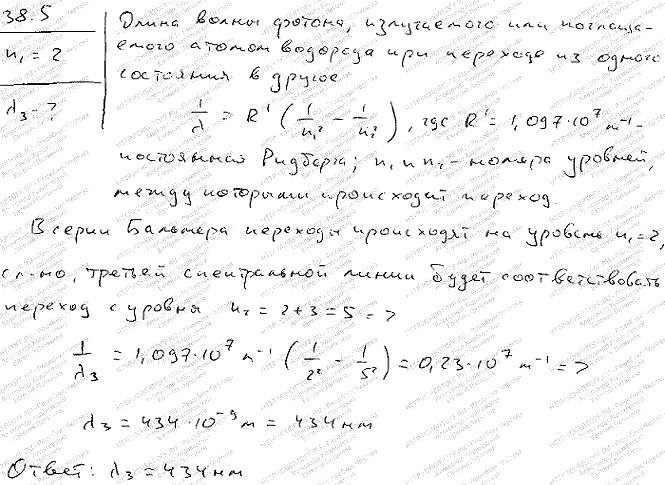 38.5
n₁ = 2
λ₃ - ?
Длина волны фотона, излучаемого или поглоща-
емого атомом водорода при переходе из одного
состояния в другое
1/λ = R' (1/n₁² - 1/n₂²), где R' = 1,097·10⁷ м⁻¹ -
постоянная Ридберга; n₁ и n₂ - номера уровней,
между которыми происходит переход.
В серии Бальмера переходы происходят на уровень n₁ = 2,
сл-но, третьей спектральной линии будет соответствовать
переход с уровня n₂ = 2+3 = 5 =>
1/λ₃ = 1,097·10⁷ м⁻¹ (1/2² - 1/5²) = 0,23·10⁷ м⁻¹ =>
λ₃ = 434·10⁻⁹ м = 434 нм
Ответ: λ₃ = 434 нм